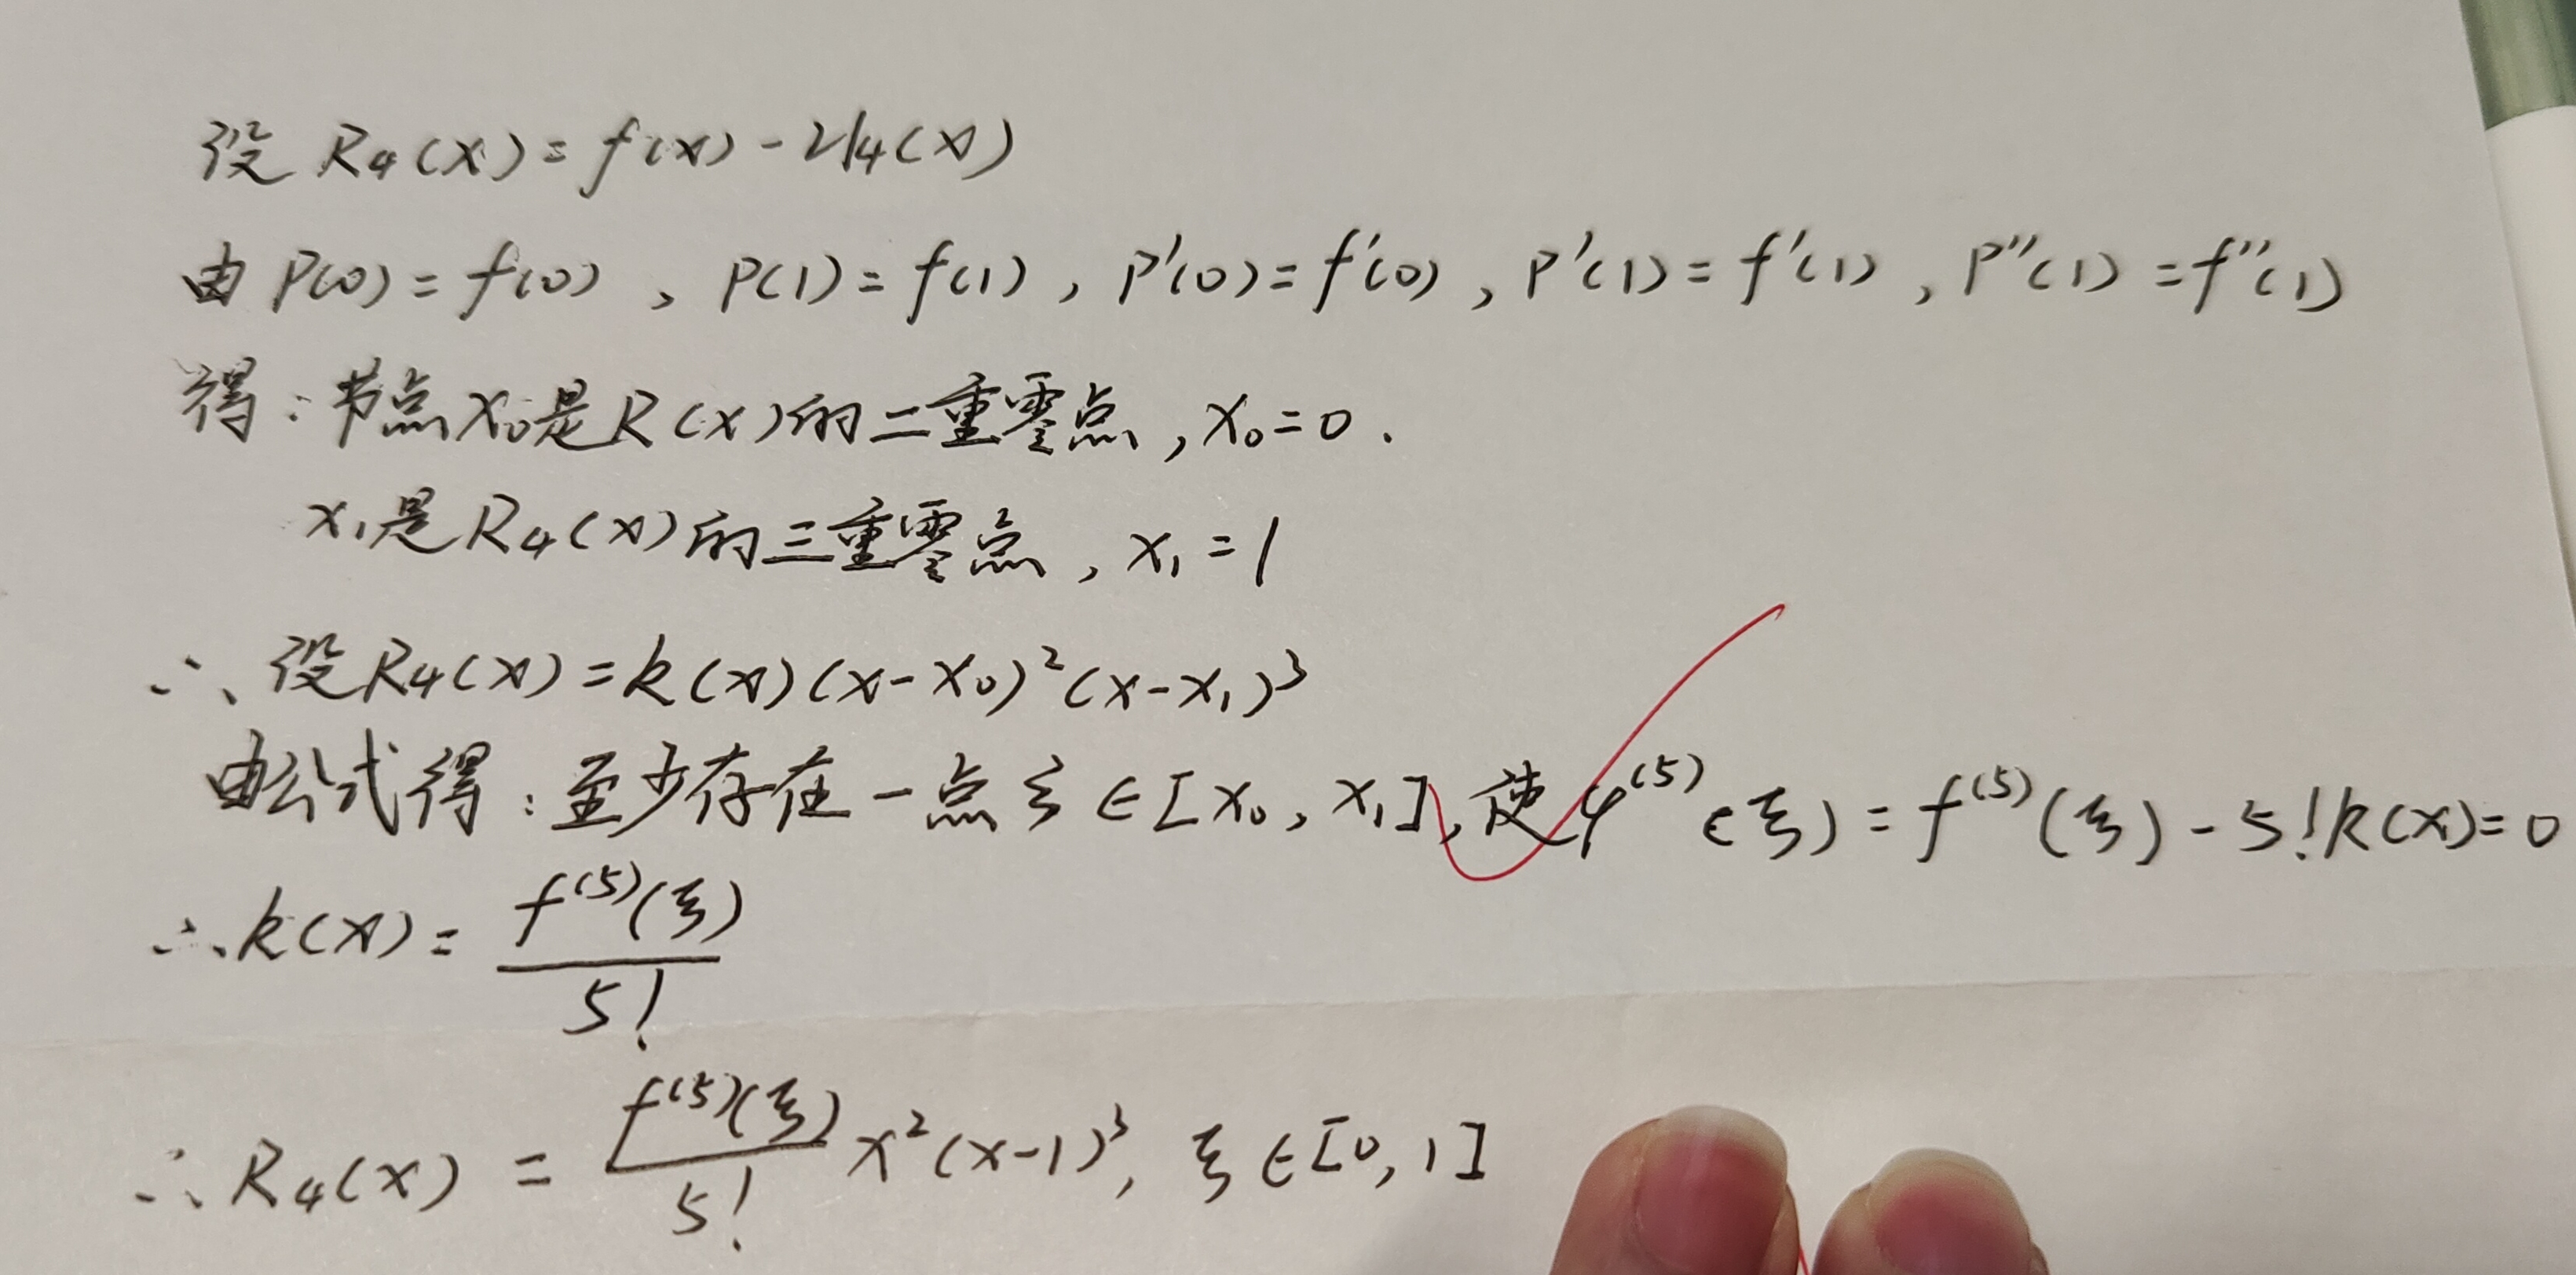 设 R₄(x) = f(x) - H₄(x)
由 P(0) = f(0) , P(1) = f(1) , P'(0) = f'(0) , P'(1) = f'(1) , P''(1) = f''(1)
得：节点x₀是R(x)的二重零点 , x₀ = 0 .
x₁是R₄(x)的三重零点 , x₁ = 1
∴ 设R₄(x) = k(x)(x-x₀)²(x-x₁)³
由公式得：至少存在一点ξ∈[x₀, x₁], 使φ⁽⁵⁾(ξ) = f⁽⁵⁾(ξ) - 5!k(x) = 0
∴ k(x) = f⁽⁵⁾(ξ) / 5!
∴ R₄(x) = f⁽⁵⁾(ξ) / 5! x²(x-1)³, ξ∈[0, 1]